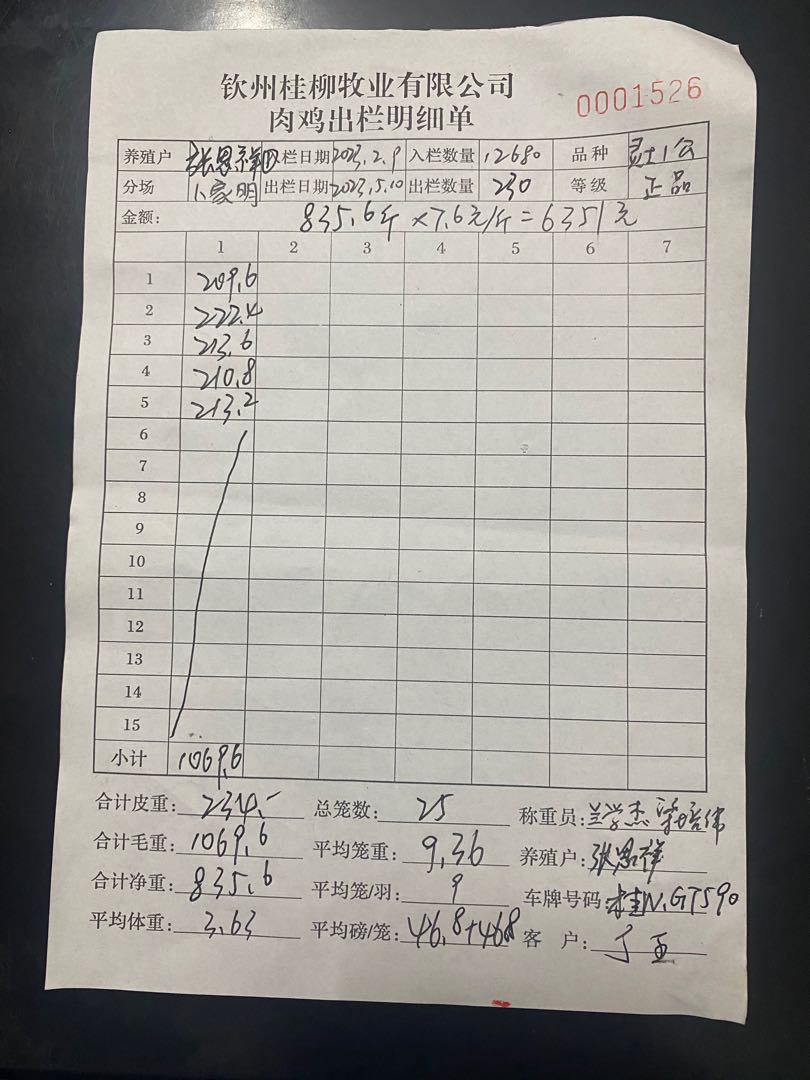 钦州桂柳牧业有限公司
肉鸡出栏明细单
0001526
养殖户 张恩祥 入栏日期 2023.2.9 入栏数量 12680 品种 土1公
分场 卜家明 出栏日期 2023.5.10 出栏数量 230 等级 正品
金额: 835.6斤×7.6元/斤=6351元
1 2 3 4 5 6 7
1 209.6
2 222.4
3 213.6
4 210.8
5 213.2
6
7
8
9
10
11
12
13
14
15
小计 1069.6
合计皮重: 234.- 总笼数: 25 称重员: 兰学杰 梁培伟
合计毛重: 1069.6 平均笼重: 9.36 养殖户: 张恩祥
合计净重: 835.6 平均笼/羽: 9 车牌号码: 桂N.GT590
平均体重: 3.63 平均磅/笼: 46.8+46.8 客 户: